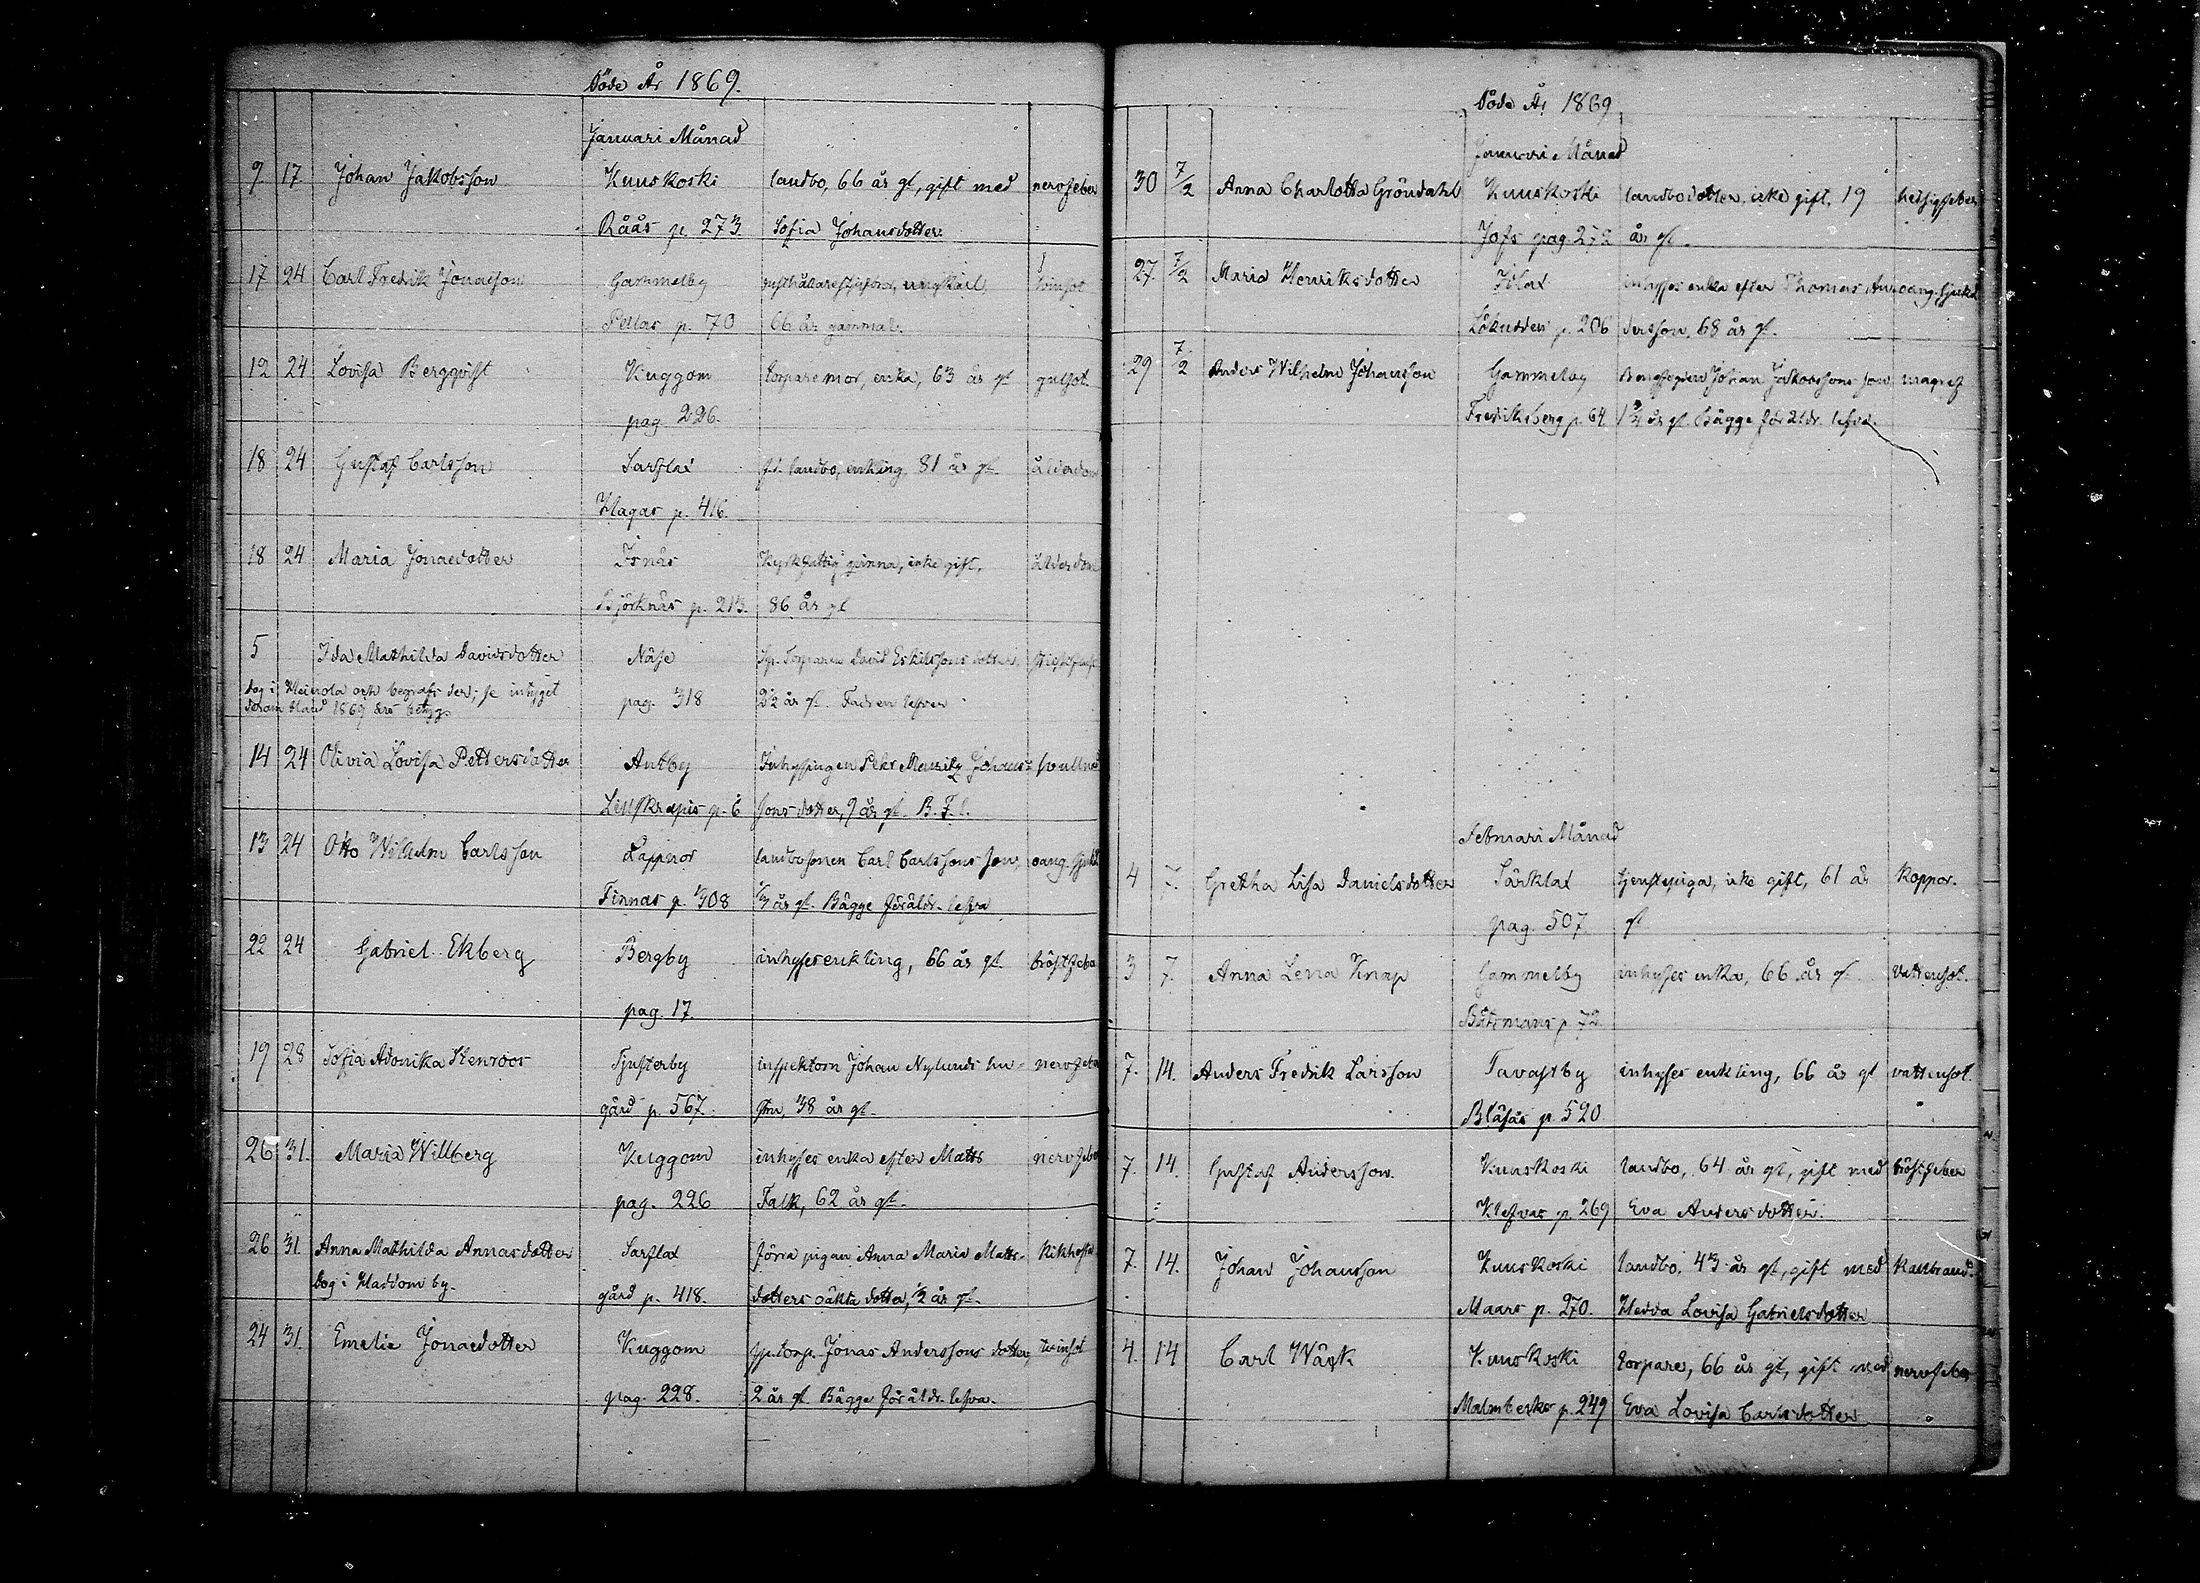 Döde År 1869.
Januari Månad
9. 17. Johan Jakobsson Kuuskoski landbo, 66 år gl, gift med nervfeber
Råårs p. 273 Sofia Johansdotter.
17 24 Carl Fredrik Jonasson Gammelby ungkarl, tvinsot
Pellas p. 70 66 år gammal.
12 24 Lovisa Bergqvist Kuggom torpare mor, enka, 63 år gl gulsot.
pag. 226.
18 24 Gustaf Carlsson Sarflax f.d. landbo, enkling, 81 år gl ålderdom
Hagas p. 416.
18 24 Maria Jonaedotter Isnäs Kyrkfattig qvinna, icke gift, ålderdom
Björknäs p. 213. 86 år gl
5 Ida Mathilda Davidsdotter Näse Torparen David Erikssons dotter,
dog i Heinola och begrafs der; se intyget
pag. 318 2½ år gl. Fadren lefver
derom bland 1869 års betygg.
14 24 Olivia Lovisa Pettersdotter Antby Inhysingen Petr Mauritz Johans- svullnad
Lillskrapis p. 6 sons dotter, 9 år gl. B. F. l.
13 24 Otto Wilhelm Carlsson Lappnor landbosonen Carl Carlssons son, oang. sjukd
Finnas p. 308 1/3 år gl. Bägge föräldr. lefva
22 24 Gabriel Ekberg Bergby inhyses enkling, 66 år gl. bröstfeber
pag. 17.
19 28 Sofia Adonika Stenroos Tjusterby inspektorn Johan Nylunds hu- nervfeber
gård p. 567. stru, 38 år gl.
26 31. Maria Willberg Kuggom inhyses enka efter Matts nervfeber
pag. 226 Falk, 62 år gl.
26 31. Anna Mathilda Annasdotter Sarflax förra pigan Anna Maria Matts- Kikhosta
dog i Haddom by.
gård p. 418. dotters oäkta dotter, ½ år gl.
24 31. Emelie Jonaedotter Kuggom torp. Jonas Anderssons dotter, tvinsot
pag. 228. 2 år gl. Bägge föräldr. lefva.
Döde År 1869
Januari Månad
30 7/2 Anna Charlotta Gröndahl Kuuskoski landbodotter, icke gift, 19 hetsigfeber
Jofs pag. 272 år gl.
27. 7/2 Maria Henriksdotter Isnäs inhyses enka efter Thomas An- oang. sjukd
p. 206 dersson, 68 år gl.
29 7/2 Anders Wilhelm Johansson Gammelby Johan Jakobssons son magref
Fredriksberg p. 64. 1¾ år gl. Bägge föräldr. lefva.
Februari Månad
4 7. Gretha Lisa Danielsdotter Särklax tjenstepiga, icke gift, 61 år Koppor.
pag. 507. gl
3 7. Anna Lena Knap Gammelby inhyses enka, 66 år gl. vattusot.
Båtsmans p. 72
7. 14. Anders Fredrik Larsson Tavastby inhyses enkling, 66 år gl vattusot.
Blåsas p. 520
7. 14. Gustaf Andersson. Kuuskoski landbo, 64 år gl, gift med bröstfeber
Klefvas p. 269 Eva Andersdotter.
7. 14. Johan Johansson Kuuskoski landbo, 43 år gl, gift med Kallbrand.
Maars p. 270. Hedda Lovisa Gabrielsdotter
4. 14 Carl Wäck Kuuskoski torpare, 66 år gl, gift med nervfeber
Malmbacka p. 249 Eva Lovisa Carlsdotter